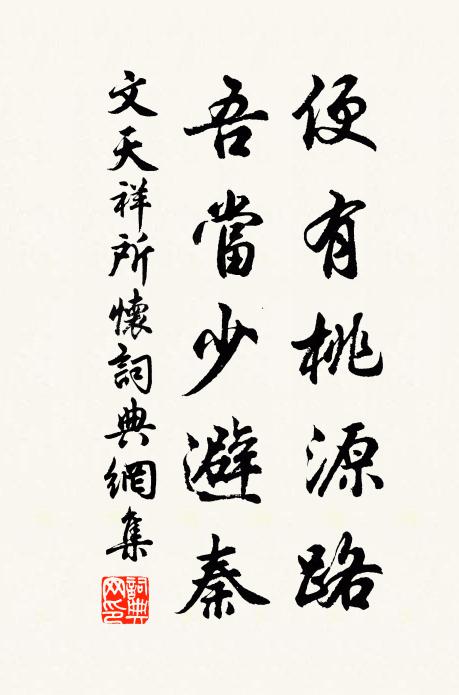 便有桃源路
吾當少避秦
文天祥所懷詞典網集
詞典網印